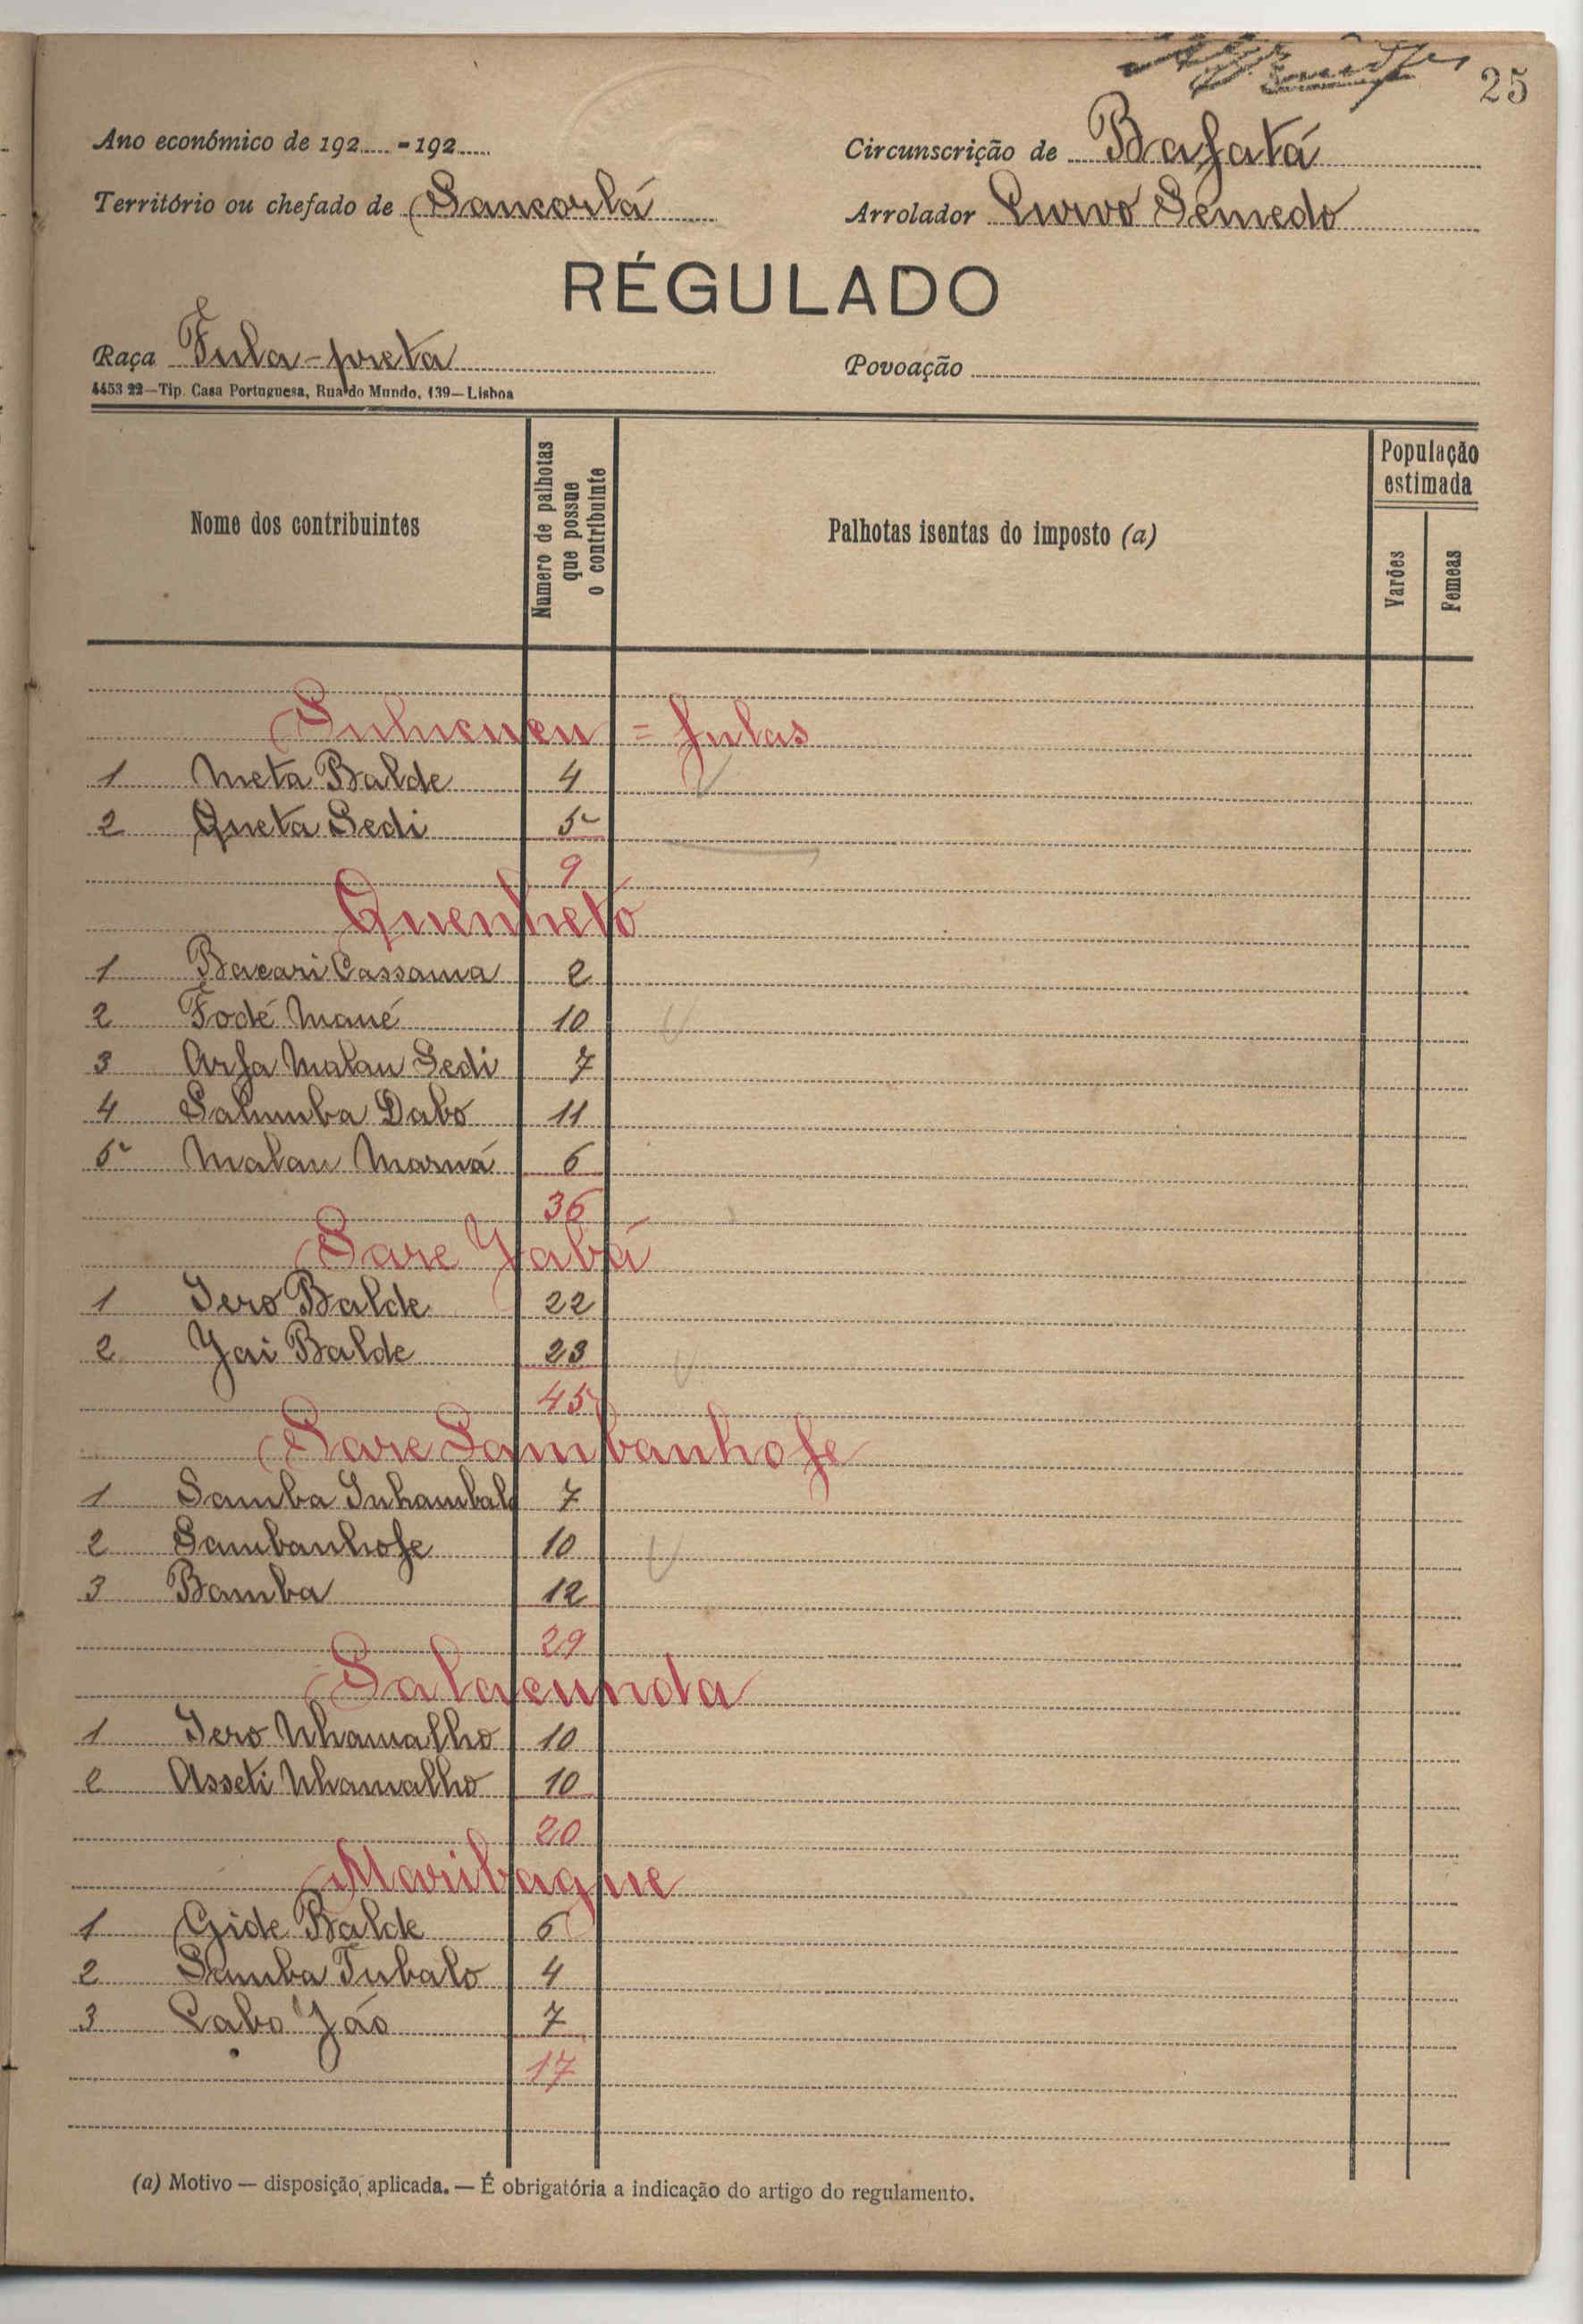 25
Ano económico de 192..... - 192.....
Circunscrição de Bafatá
Território ou chefado de Sancorlá
Arrolador Curvo Semedo
RÉGULADO
Raça Fula-preta
Povoação
4453 22—Tip. Casa Portuguesa, Rua do Mundo, 139—Lisboa
Nome dos contribuintes
Numero de palhotas que possue o contribuinte
Palhotas isentas do imposto (a)
População estimada
Varões
Femeas
= fulas
1 Meta Balde 4
2 Queta Sedi 5
9
Quenhetó
1 Bacari Cassama 2
2 Fodé Mané 10
3 Arfa Malau Sedi 7
4 Salumba Dabo 11
5 Malau 6
36
Sare Yabá
1 Iero Balde 22
2 Yai Balde 23
45
Sare Sambanhofe
1 Samba Inhambalo 7
2 Sambanhofe 10
3 Bamba 12
29
Salacunda
1 Iero Nhamalho 10
2 Asseti Nhamalho 10
20
Maribaque
1 Gide Balde 6
2 Samba Tubalo 4
3 Cabo Jáo 7
17
(a) Motivo — disposição aplicada. — É obrigatória a indicação do artigo do regulamento.